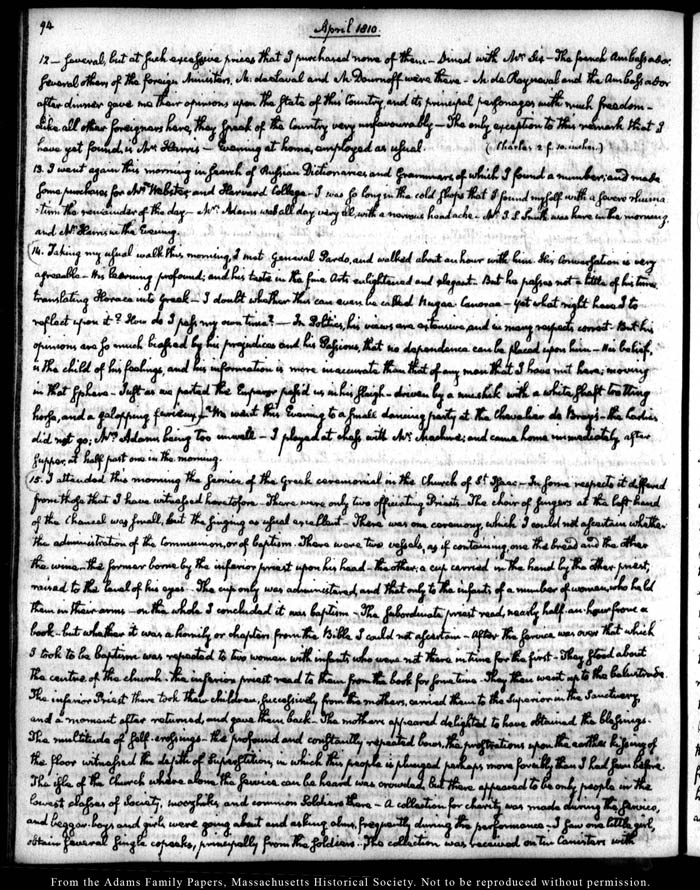 94
April 1810.
12 — several, but at such excessive prices that I purchased none of them — Dined with Mr. Six — The french Ambassador,
several others of the foreign Ministers, M. de Laval and M. Dournoff were there — M. de Rayneval and the Ambassador
after dinner gave me their opinions upon the State of this Country, and its principal personages with much freedom —
Like all other foreigners here, they speak of the Country very unfavourably — The only exception to this remark that I
have yet found, is Mr. Harris — Evening at home, employed as usual. (Charles 2 f. 10. inches.)
13. I went again this morning in search of Russian Dictionaries and Grammars, of which I found a number; and made
some purchases for Mr. Webster, and Harvard College — I was so long in the cold shops that I found myself with a severe rheuma-
-tism the remainder of the day — Mrs. Adams was all day very ill, with a nervous headache — Mr. J. S. Smith was here in the morning,
and Mr. Harris in the Evening.
14. Taking my usual walk this morning, I met General Pardo, and walked about an hour with him. His Conversation is very
agreeable — His learning profound; and his taste in the fine Arts enlightened and elegant — But he passes not a little of his time
translating Horace into Greek — I doubt whether this can even be called Nugae Canorae — yet what right have I to
reflect upon it? How do I pass my own time? — In Politics, his views are extensive, and in many respects correct — But his
opinions are so much biassed by his prejudices and his Passions, that no dependence can be placed upon him — His belief,
is the child of his feelings, and his information is more inaccurate than that of any man that I have met here; moving
in that sphere — Just as we parted the Emperor pass'd us in his sleigh — driven by a muzhik with a white shaft trotting
horse, and a galloping — We went this Evening to a small dancing party at the Chevalier de Bray's — the Ladies
did not go; Mrs. Adams being too unwell — I played at chess with Mr. and came home immediately after
supper, at half past one in the morning.
15. I attended this morning the service of the Greek ceremonial in the Church of St. Isaac — In some respects it differed
from those that I have witnessed heretofore — There were only two officiating Priests — The choir of singers at the left hand
of the Chancel was small, but the singing as usual excellent — There was one ceremony, which I could not ascertain whether
the administration of the Communion, or of baptism. There were two vessels, as if containing, one the bread and the other
the wine — the former borne by the inferior priest upon his head — the other, a cup carried in the hand by the other priest,
raised to the level of his eyes — The cup only was administered, and that only to the infants of a number of women, who held
them in their arms — on the whole I concluded it was baptism — The subordinate priest read, nearly half-an-hour from a
book — but whether it was a homily or chapters from the Bible I could not ascertain — After the service was over that which
I took to be baptism was repeated to two women with infants who were not there in time for the first — They stood about
the centre of the church — the inferior priest read to them from the book for some time — They then went up to the balustrade.
The inferior Priest there took their children, successively from the mothers, carried them to the Superior in the Sanctuary,
and a moment after returned, and gave them back — The mothers appeared delighted to have obtained the blessings.
The multitude of self-crossings — the profound and constantly repeated bows, the prostrations upon the earth & kissing of
the floor witnessed the depth of Superstition, in which this people is plunged perhaps more forcibly than I had seen before.
The isle of the Church where alone the service can be heard was crowded, but there appeared to be only people in the
lowest classes of Society, moozhiks, and common Soldiers there — A collection for charity was made during the service,
and beggar-boys and girls were going about and asking alms, frequently during the performance — I saw one little girl,
obtain several single copeeks, principally from the Soldiers — The collection was received on two Canisters with
From the Adams Family Papers, Massachusetts Historical Society. Not to be reproduced without permission.